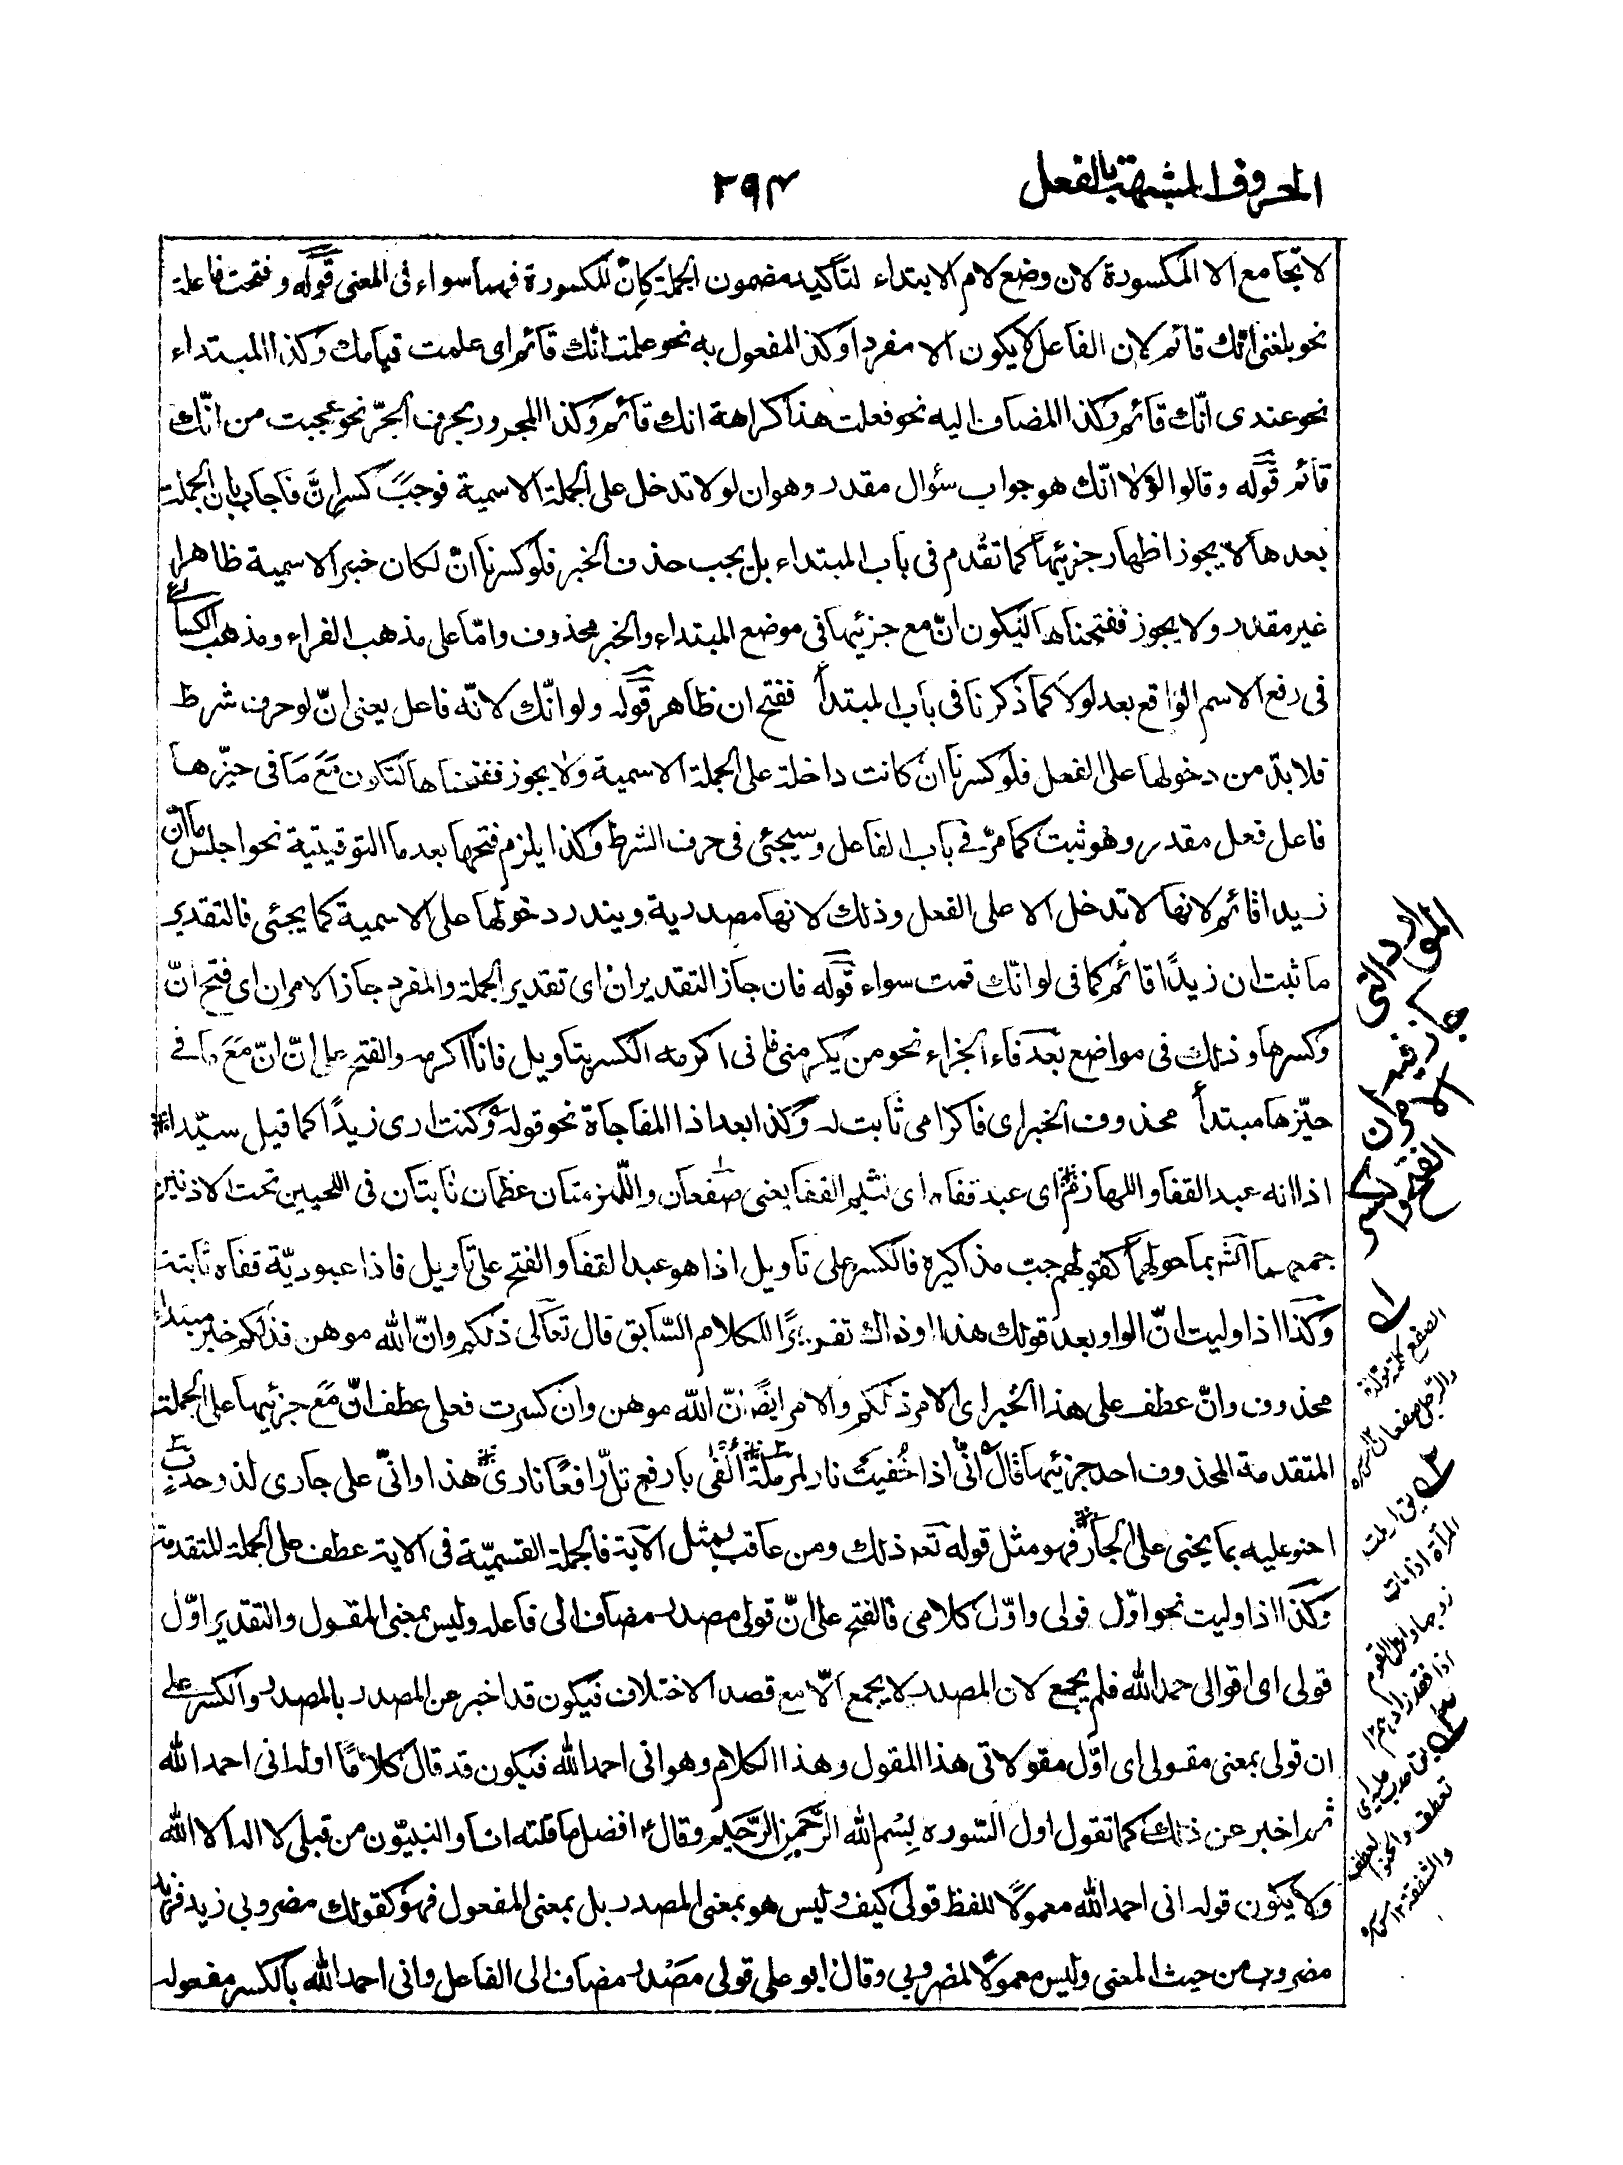 الحروف المشبهة بالفعل
٣٩٤
لا تجامع الا المكسورة لان وضع لام الابتداء لتأكيد مضمون الجملة كإنّ المكسورة فهما سواء فى المعنى قوله وفتحت فاعلة
نحو بلغنى انّك قائم لان الفاعل لا يكون الا مفردا وكذا المفعول به نحو علمت انّك قائم اى علمت قيامك وكذا المبتداء
نحو عندى انّك قائم وكذا المضاف اليه نحو فعلت هذا كراهة انك قائم وكذا المجرور بحرف الجرّ نحو عجبت من انّك
قائم قوله وقالوا لولا انّك هو جواب سؤال مقدر وهو ان لولا تدخل على الجملة الاسمية فوجب كسر إنّ فاجاب بان الجملة
بعدها لا يجوز اظهار جزئيها كما تقدم فى باب المبتداء بل يجب حذف الخبر فلو كسرنا انّ لكان خبر الاسمية ظاهرا
غير مقدر ولا يجوز ففتحناها ليكون انّ مع جزئيها فى موضع المبتداء والخبر محذوف وامّا على مذهب الفراء ومذهب الكسائى
فى رفع الاسم الواقع بعد لولا كما ذكرنا فى باب المبتدأ ففتح ان ظاهر قوله ولو انّك لانّه فاعل يعنى انّ لو حرف شرط
فلا بدّ من دخولها على الفعل فلو كسرنا انّ كانت داخلة على الجملة الاسمية ولا يجوز ففتحناها لتكون مَعَ مَا فى حيّزها
فاعل فعل مقدر وهو ثبت كما مرّ فى باب الفاعل وسيجئى فى حرف الشرط وكذا يلزم فتحها بعد ما التوقيتية نحو اجلس ما انّ
زيدا قائم لانها لا تدخل الا على الفعل وذلك لانها مصدرية ويندر دخولها على الاسمية كما يجئى فالتقدير
ما ثبت ان زيدًا قائم كما فى لو انّك قمت سواء قوله فان جاز التقديران اى تقدير الجملة والمفرد جاز الامران اى فتح انّ
وكسرها وذلك فى مواضع بعد فاء الجزاء نحو من يكرمنى فانى اكرمه الكسر بتاويل فانا اكرمه والفتح على انّ انّ مَعَ ما فى
حيّزها مبتدأ محذوف الخبر اى فاكرامى ثابت له وكذا بعد اذا المفاجاة نحو قوله وكنت ارى زيدًا كما قيل سيّدا
اذا انه عبد القفا واللهازم اى عبد قفاه اى لئيم القفا يعنى صفعان واللّهزمتان عظمان ناتيان فى اللحيين تحت الاذنين
جمعهما الشاعر بما حولهما كقولهم جب مذاكيره فالكسر على تاويل اذا هو عبد القفا والفتح على تاويل فاذا عبوديّة قفاه ثابتة
وكذا اذا وليت انّ الواو بعد قولك هذا او ذاك تقريرًا للكلام السّابق قال تعالى ذلكم وانّ الله موهن فذلكم خبر مبتداء
محذوف وانّ عطف على هذا الخبر اى الامر ذلكم والامر ايضًا انّ الله موهن وان كسرت فعلى عطف انّ مَعَ جزئيها على الجملة
المتقدمة المحذوف احد جزئيها قال انّى اذا خُفيت نار لمرملة اُلفَى بارفع تلّ رافعًا نارى هذا وانّى على جارى لذو حدب
احنو عليه بما يحنى على الجار فهو مثل قوله تعـ ذلك ومن عاقب بمثل الآية فالجملة القسميّة فى الاية عطف على الجملة المتقدمة
وكذا اذا وليت نحو اوّل قولى واوّل كلامى فالفتح على انّ قولى مصدر مضاف الى فاعله وليس بمعنى المقول والتقدير اوّل
قولى اى اقوالى حمد الله فلم يجمع لان المصدر لا يجمع الّا مع قصد الاختلاف فيكون قد اخبر عن المصدر بالمصدر والكسر على
ان قولى بمعنى مقولى اى اوّل مقولاتى هذا المقول وهذا الكلام وهو انى احمد الله فيكون قد قال كلامًا اوله انى احمد الله
ثم اخبر عن ذلك كما تقول اول السّوره بِسْمِ الله الرَّحْمٰنِ الرَّحِيم وقال ع افضل ما قلته انا والنبيّون من قبلى لا اله الا الله
ولا يكون قوله انى احمد الله معمولًا للفظ قولى كيف وليس هو بمعنى المصدر بل بمعنى المفعول فهو كقولك مضروبى زيد فزيد
مضروب من حيث المعنى وليس معمولًا لمضروبى وقال ابو على قولى مصدر مضاف الى الفاعل وانى احمد الله بالكسر مفعوله
الموارد التى
جاز فيه
الامران
الفتح والكسر
الصفع كلمة مولدة
والرجل صفعان ١٢
يق ارملت
المرأة اذا مات
زوجها وارمل القوم
اذا فقد زادهم ١٢
يق حدب عليه اى
تعطف والحنو العطف
والشفقة ١٢